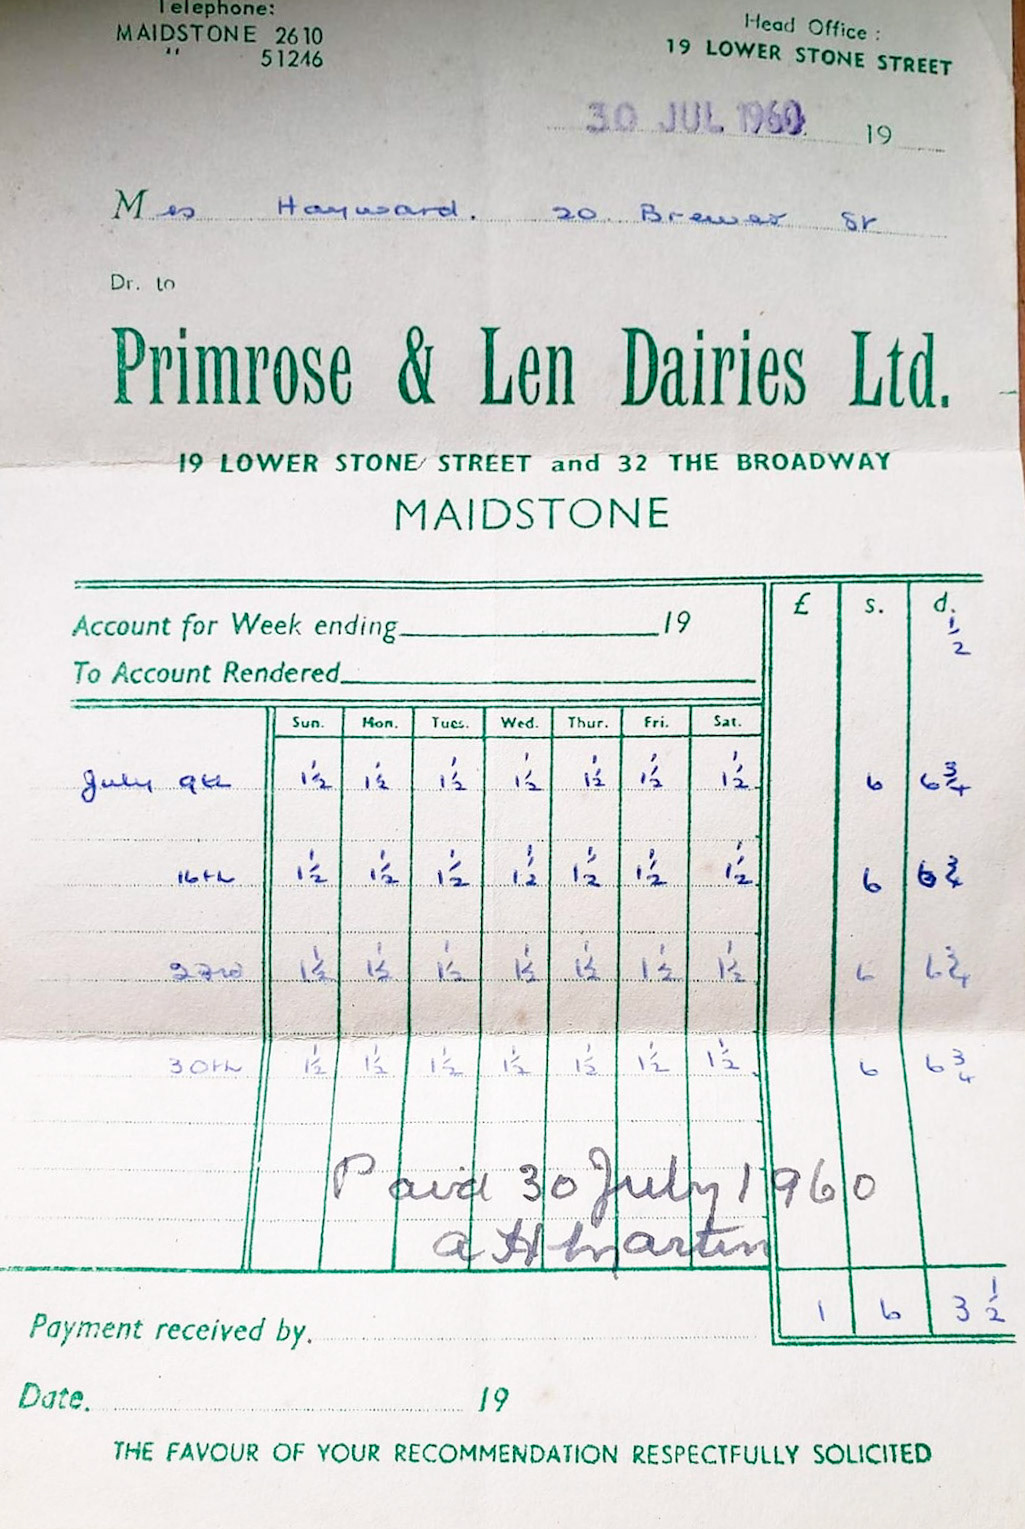 Telephone:
MAIDSTONE 2610
" 51246
Head Office :
19 LOWER STONE STREET
30 JUL 1960 19
Mrs Hayward. 20 Brewer St
Dr. to
Primrose & Len Dairies Ltd.
19 LOWER STONE STREET and 32 THE BROADWAY
MAIDSTONE
£ s. d.
Account for Week ending 19 ½
To Account Rendered
Sun. Mon. Tues. Wed. Thur. Fri. Sat.
July 9th 1½ 1½ 1½ 1½ 1½ 1½ 1½ 6 6¾
16th 1½ 1½ 1½ 1½ 1½ 1½ 1½ 6 6¾
23rd 1½ 1½ 1½ 1½ 1½ 1½ 1½ 6 6¾
30th 1½ 1½ 1½ 1½ 1½ 1½ 1½ 6 6¾
Paid 30 July 1960
A H Martin
1 6 3½
Payment received by.
Date. 19
THE FAVOUR OF YOUR RECOMMENDATION RESPECTFULLY SOLICITED